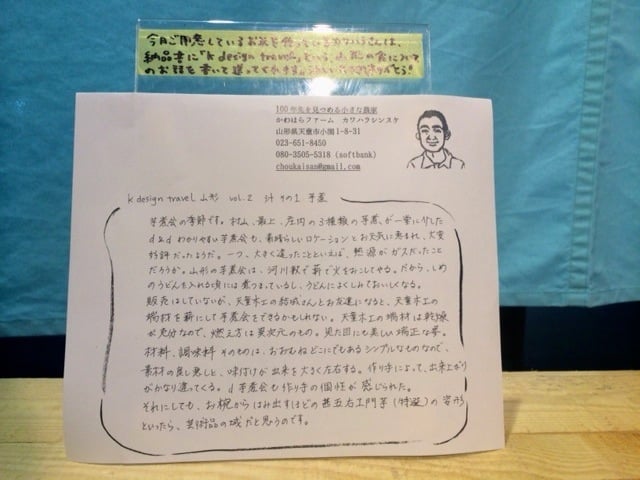 今月ご用意しているお米を作っているかわはらさんは、
納品書に「k design travel」という、山形の食について
のお話を書いて送ってくれます。
100年先を見つめる小さな農家
かわはらファーム　カワハラシンスケ
山形県天童市小関1-8-31
023-651-8450
080-3505-5318 (softbank)
choukaisan@gmail.com
k design travel 山形 vol.2 汁 その1 芋煮
芋煮会の季節です。村山、最上、庄内の3種類の芋煮が一堂に介した
d&d わかりやすい芋煮会も、素晴らしいロケーションとお天気に恵まれ、大変
好評だったようだ。一つ、大きく違ったことといえば、熱源がガスだったこと
だろうか。山形の芋煮会は、河川敷で薪で火をおこしてやる。だから、しめ
のうどんを入れる頃には煮つまっているし、うどんによくしみておいしくなる。
販売はしていないが、天童木工の結城さんとお友達になると、天童木工の
端材を薪にして芋煮会をできるかもしれない。天童木工の端材は乾燥
が充分なので、燃え方は異次元のもの。見た目にも美しい端正な薪。
材料、調味料そのものは、おおむねどこにでもあるシンプルなものなので、
素材の良し悪しと、味付けが出来を大きく左右する。作り手によって、出来上がり
がかなり違ってくる。d芋煮会も作り手の個性が感じられた。
それにしても、お椀からはみ出すほどの甚五右ヱ門芋(特選)の姿形
といったら、芸術品の域だと思うのです。